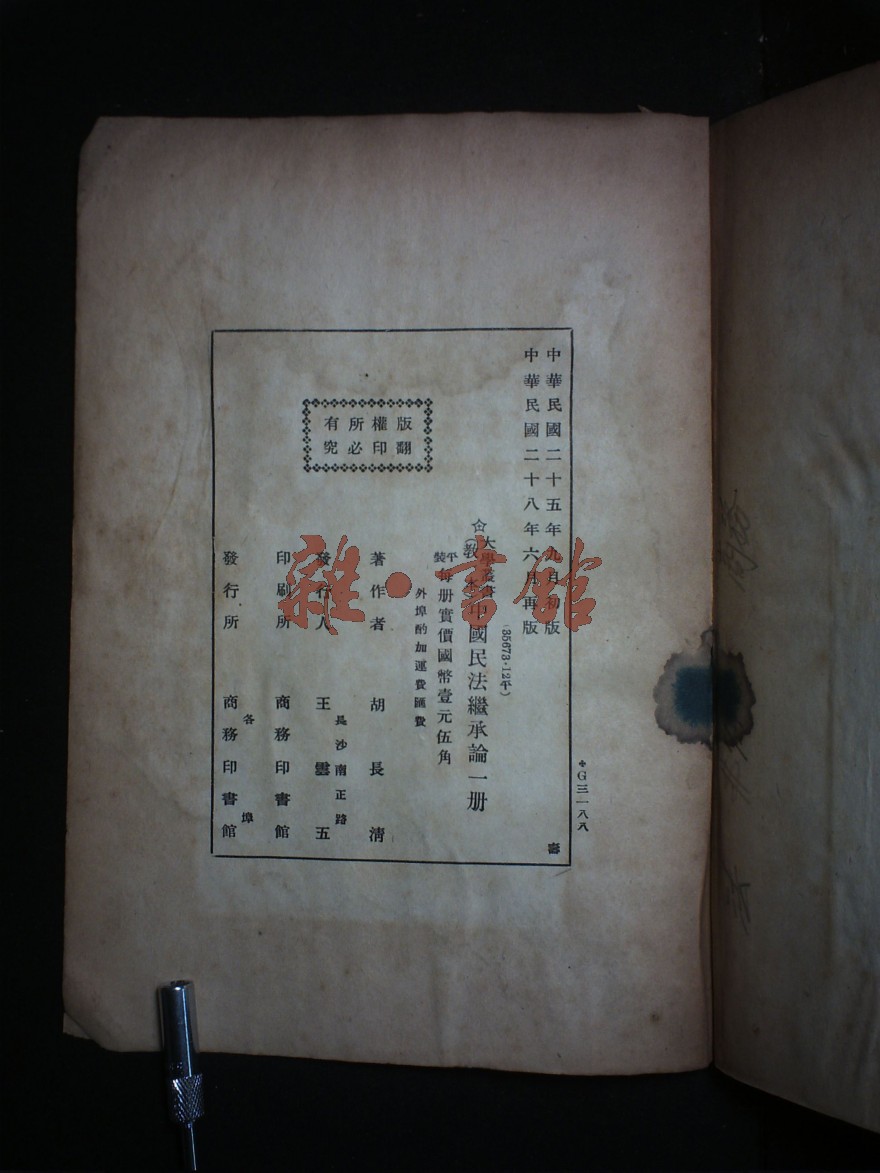 中華民國二十五年九月初版
中華民國二十八年六月再版
(35673·12平)
大學叢書(教本)中國民法繼承論一册
平裝每册實價國幣壹元伍角
外埠酌加運費匯費
版權所有
翻印必究
著作者 胡長淸
發行人 王雲五
長沙南正路
印刷所 商務印書館
發行所 商務印書館
各埠
G三一八八
壽
雜·書館